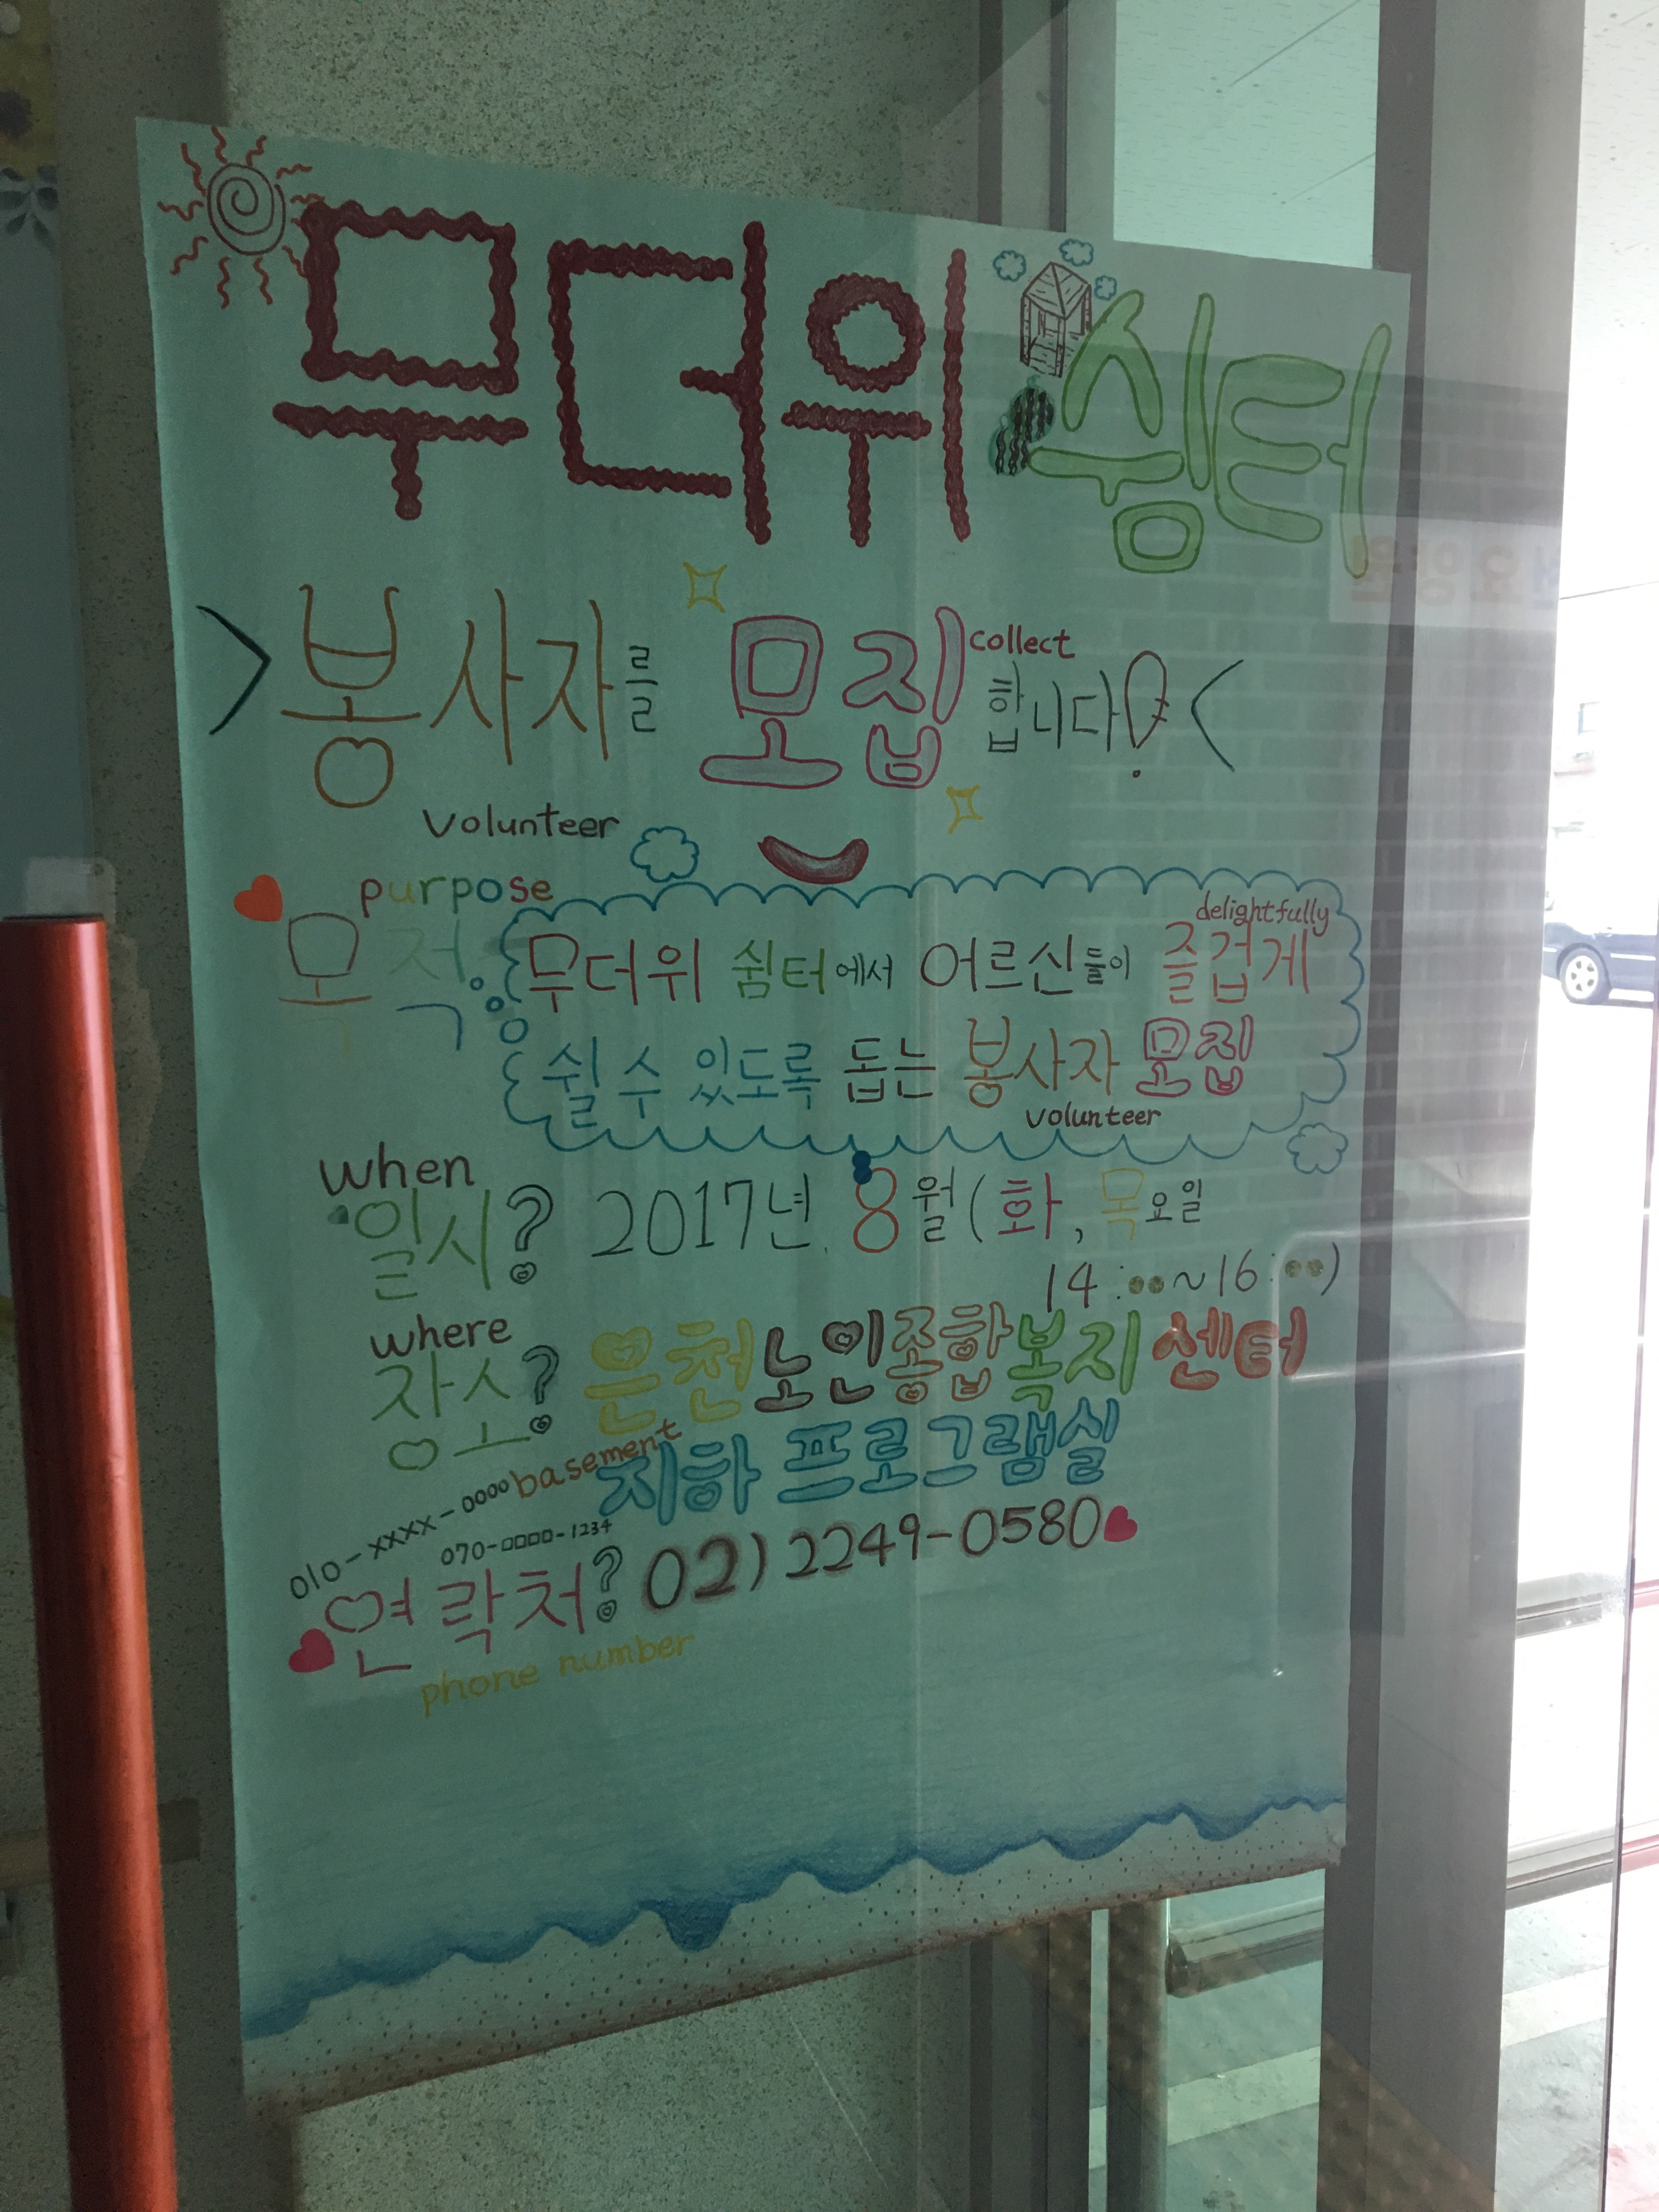 무더위 쉼터
봉사자를 모집 합니다!
collect
volunteer
purpose
목적
delightfully
무더위 쉼터에서 어르신들이 즐겁게
쉴 수 있도록 돕는 봉사자 모집
volunteer
when
일시? 2017년. 8월 (화, 목요일
14:00~16:00)
where
장소? 은천노인종합복지센터
basement
지하 프로그램실
010-xxxx-0000
070-□□□□-1234
연락처? 02) 2249-0580
phone number